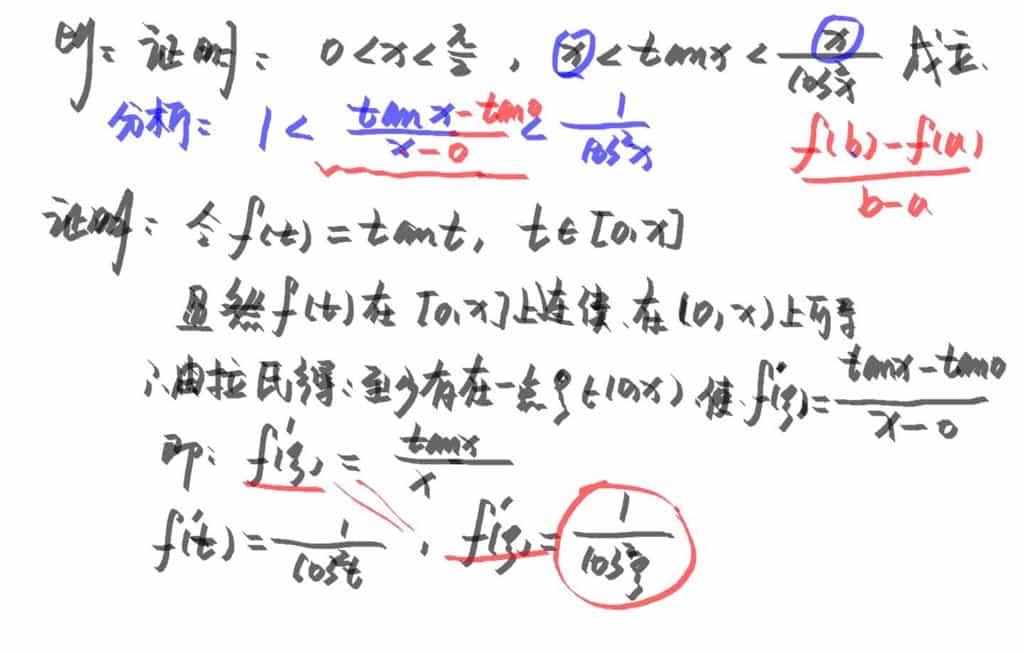 例: 证明: 0<x<π/2, x<tanx<x/cos²x 成立.
分析: 1< (tanx-tan0)/(x-0) < 1/cos²x (f(b)-f(a))/(b-a)
证明: 令f(t)=tant, t∈[0,x]
显然f(t)在[0,x]上连续,在(0,x)上可导
∴由拉氏得:至少存在一点ξ∈(0,x),使f'(ξ)=(tanx-tan0)/(x-0)
即: f'(ξ)=tanx/x
f'(t)=1/cos²t, f'(ξ)=1/cos²ξ